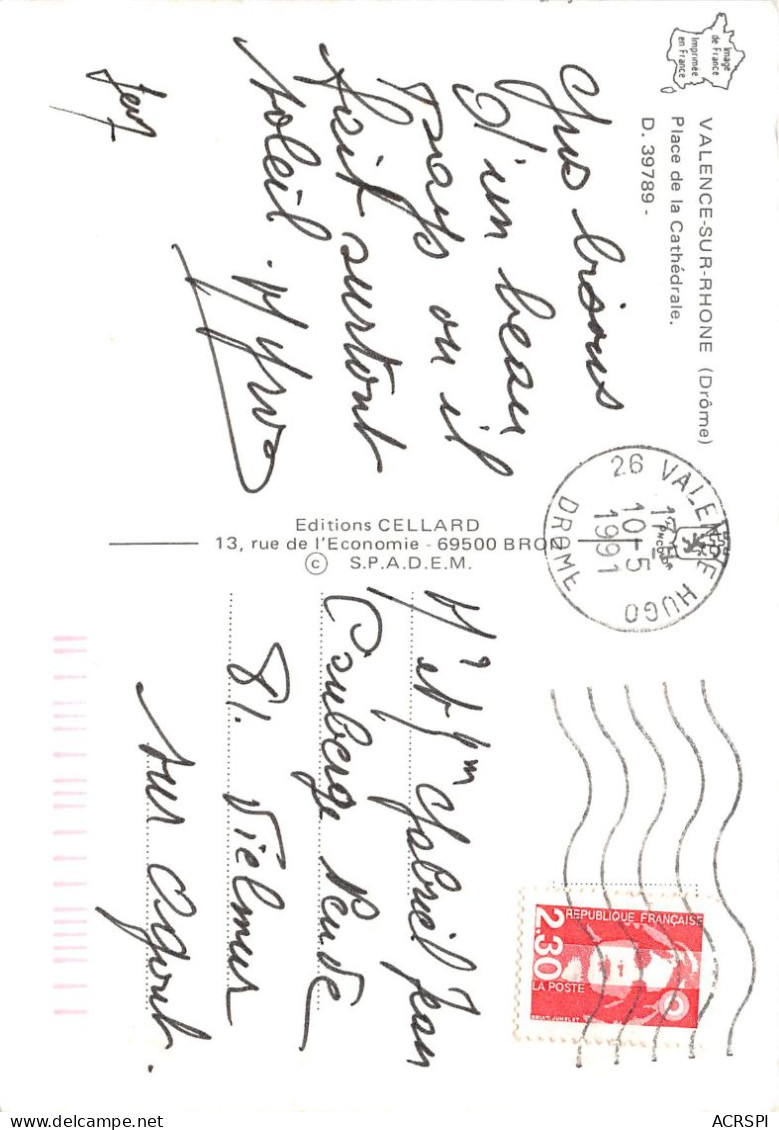 Image
de France
Imprimée
en France
VALENCE-SUR-RHONE (Drôme)
Place de la Cathédrale.
D. 39789 -
Gros bisous
d'un beau
Pays ou il
fait surtout
soleil.
Editions CELLARD
13, rue de l'Economie - 69500 BRON
© S.P.A.D.E.M.
26 VALENCE HUGO
17 H
10-5
1991
DROME
REPUBLIQUE FRANÇAISE
2,30
LA POSTE
Mr et Mme Gabriel Jean
81. Vielmur
sur Agout.
ACRSPI